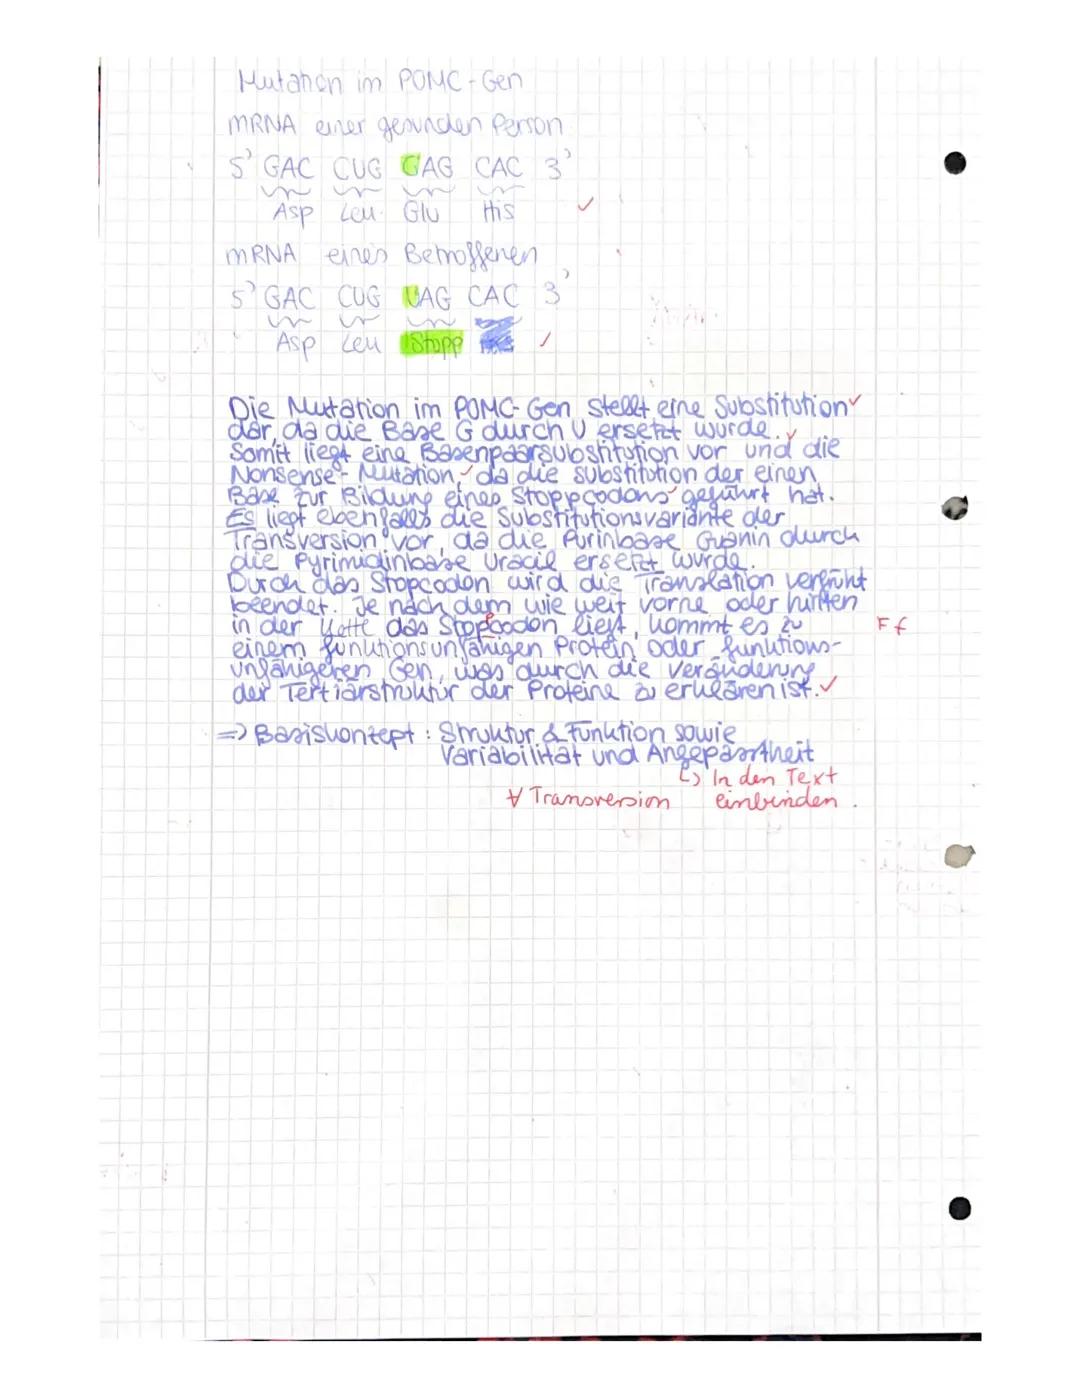 Mutation im POMC-Gen
mRNA einer gesunden Person
5' GAC CUG GAG CAC 3'
Asp Leu Glu His ✓
mRNA eines Betroffenen
5' GAC CUG UAG CAC 3'
Asp Leu Stopp ✓
Die Mutation im POMC-Gen stellt eine Substitution ✓
dar, da die Base G durch U ersetzt wurde. ✓
Somit liegt eine Basenpaarsubstitution vor und die
Nonsense-Mutation, ✓ da die Substitution der einen
Base zur Bildung eines Stoppcodons geführt hat.
Es liegt ebenfalls die Substitutionsvariante der
Transversion vor, da die Purinbase Guanin durch
die Pyrimidinbase Uracil ersetzt wurde.
Durch das Stopcodon wird die Translation verfrüht
beendet. Je nach dem wie weit vorne oder hinten
in der Kette das Stopcodon liegt, kommt es zu Ff
einem funktionsunfähigen Protein oder funktions-
unfähigeren Gen, was durch die Veränderung
der Tertiärstruktur der Proteine zu erklären ist. ✓
=> Basiskonzept: Struktur & Funktion sowie
Variabilität und Angepasstheit
↳ In den Text
∀ Transversion einbinden.